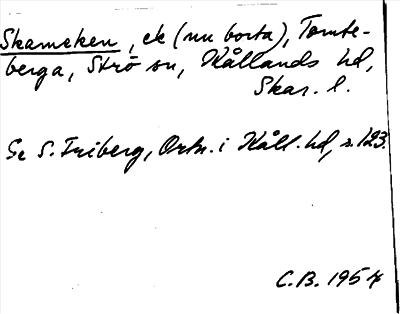 Skameken, ek (nu borta), Tomte-
berga, Strö sn, Kållands hd,
Skar. l.
Se S. Friberg, Ortn. i Kåll. hd, s. 123.
C.B. 1954